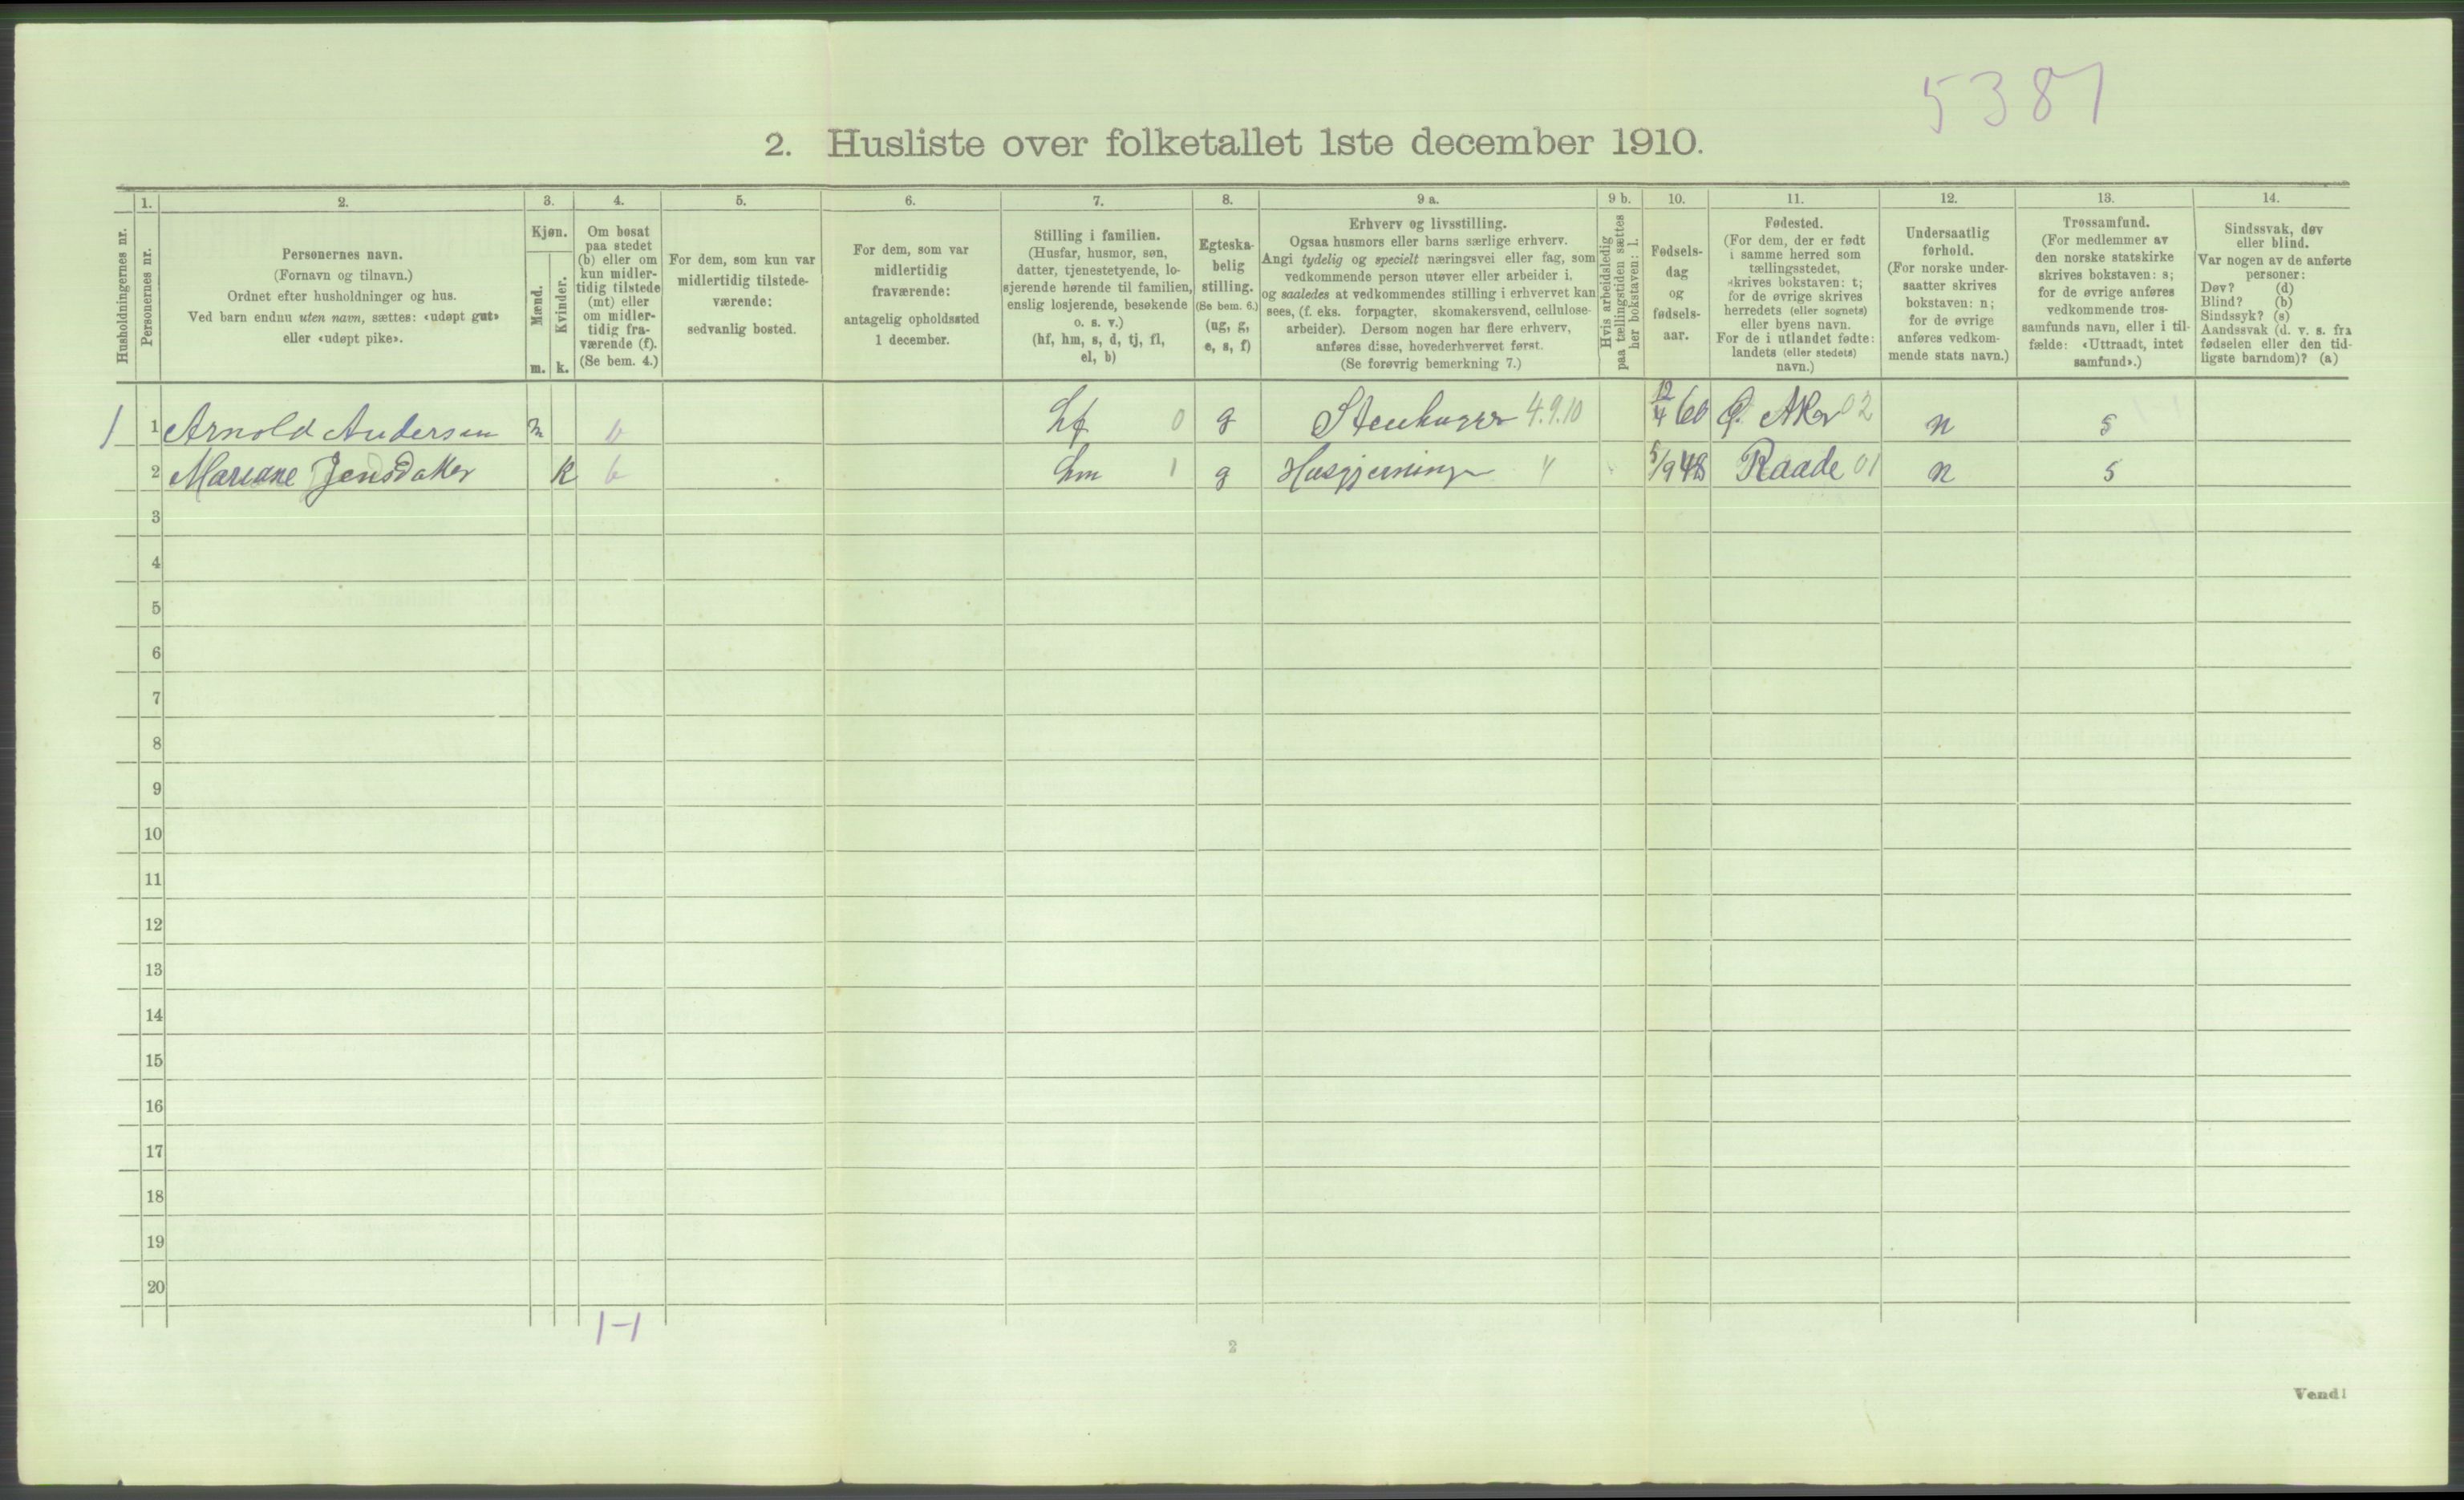 5387
2. Husliste over folketallet 1ste december 1910.
Husholdningernes nr.
1.
Personernes nr.
2.
Personernes navn.
(Fornavn og tilnavn.)
Ordnet efter husholdninger og hus.
Ved barn endnu uten navn, sættes: «udøpt gut»
eller «udøpt pike».
3.
Kjøn.
Mænd.
m.
Kvinder.
k.
4.
Om bosat
paa stedet
(b) eller om
kun midler-
tidig tilstede
(mt) eller
om midler-
tidig fra-
værende (f).
(Se bem. 4.)
5.
For dem, som kun var
midlertidig tilstede-
værende:
sedvanlig bosted.
6.
For dem, som var
midlertidig
fraværende:
antagelig opholdssted
1 december.
7.
Stilling i familien.
(Husfar, husmor, søn,
datter, tjenestetyende, lo-
sjerende hørende til familien,
enslig losjerende, besøkende
o. s. v.)
(hf, hm, s, d, tj, fl,
el, b)
8.
Egteska-
belig
stilling.
(Se bem. 6.)
(ug, g,
e, s, f)
9 a.
Erhverv og livsstilling.
Ogsaa husmors eller barns særlige erhverv.
Angi tydelig og specielt næringsvei eller fag, som
vedkommende person utøver eller arbeider i,
og saaledes at vedkommendes stilling i erhvervet kan
sees, (f. eks. forpagter, skomakersvend, cellulose-
arbeider). Dersom nogen har flere erhverv,
anføres disse, hovederhvervet først.
(Se forøvrig bemerkning 7.)
9 b.
Hvis arbeidsledig
paa tællingstiden sættes
her bokstaven: l.
10.
Fødsels-
dag
og
fødsels-
aar.
11.
Fødested.
(For dem, der er født
i samme herred som
tællingsstedet,
skrives bokstaven: t;
for de øvrige skrives
herredets (eller sognets)
eller byens navn.
For de i utlandet fødte:
landets (eller stedets)
navn.)
12.
Undersaatlig
forhold.
(For norske under-
saatter skrives
bokstaven: n;
for de øvrige
anføres vedkom-
mende stats navn.)
13.
Trossamfund.
(For medlemmer av
den norske statskirke
skrives bokstaven: s;
for de øvrige anføres
vedkommende tros-
samfunds navn, eller i til-
fælde: «Uttraadt, intet
samfund».)
14.
Sindssvak, døv
eller blind.
Var nogen av de anførte
personer:
Døv? (d)
Blind? (b)
Sindssyk? (s)
Aandssvak (d. v. s. fra
fødselen eller den tid-
ligste barndom)? (a)
1 1 Arnold Andersen m b hf 0 g Stenhugger 4.9.10 12/4 60 Ø. Aker 02 n s
2 Mariane Jensdatter k b hm 1 g Husgjerning 5/9 48 Raade 01 n s
3
4
5
6
7
8
9
10
11
12
13
14
15
16
17
18
19
20
1-1
2
Vend!